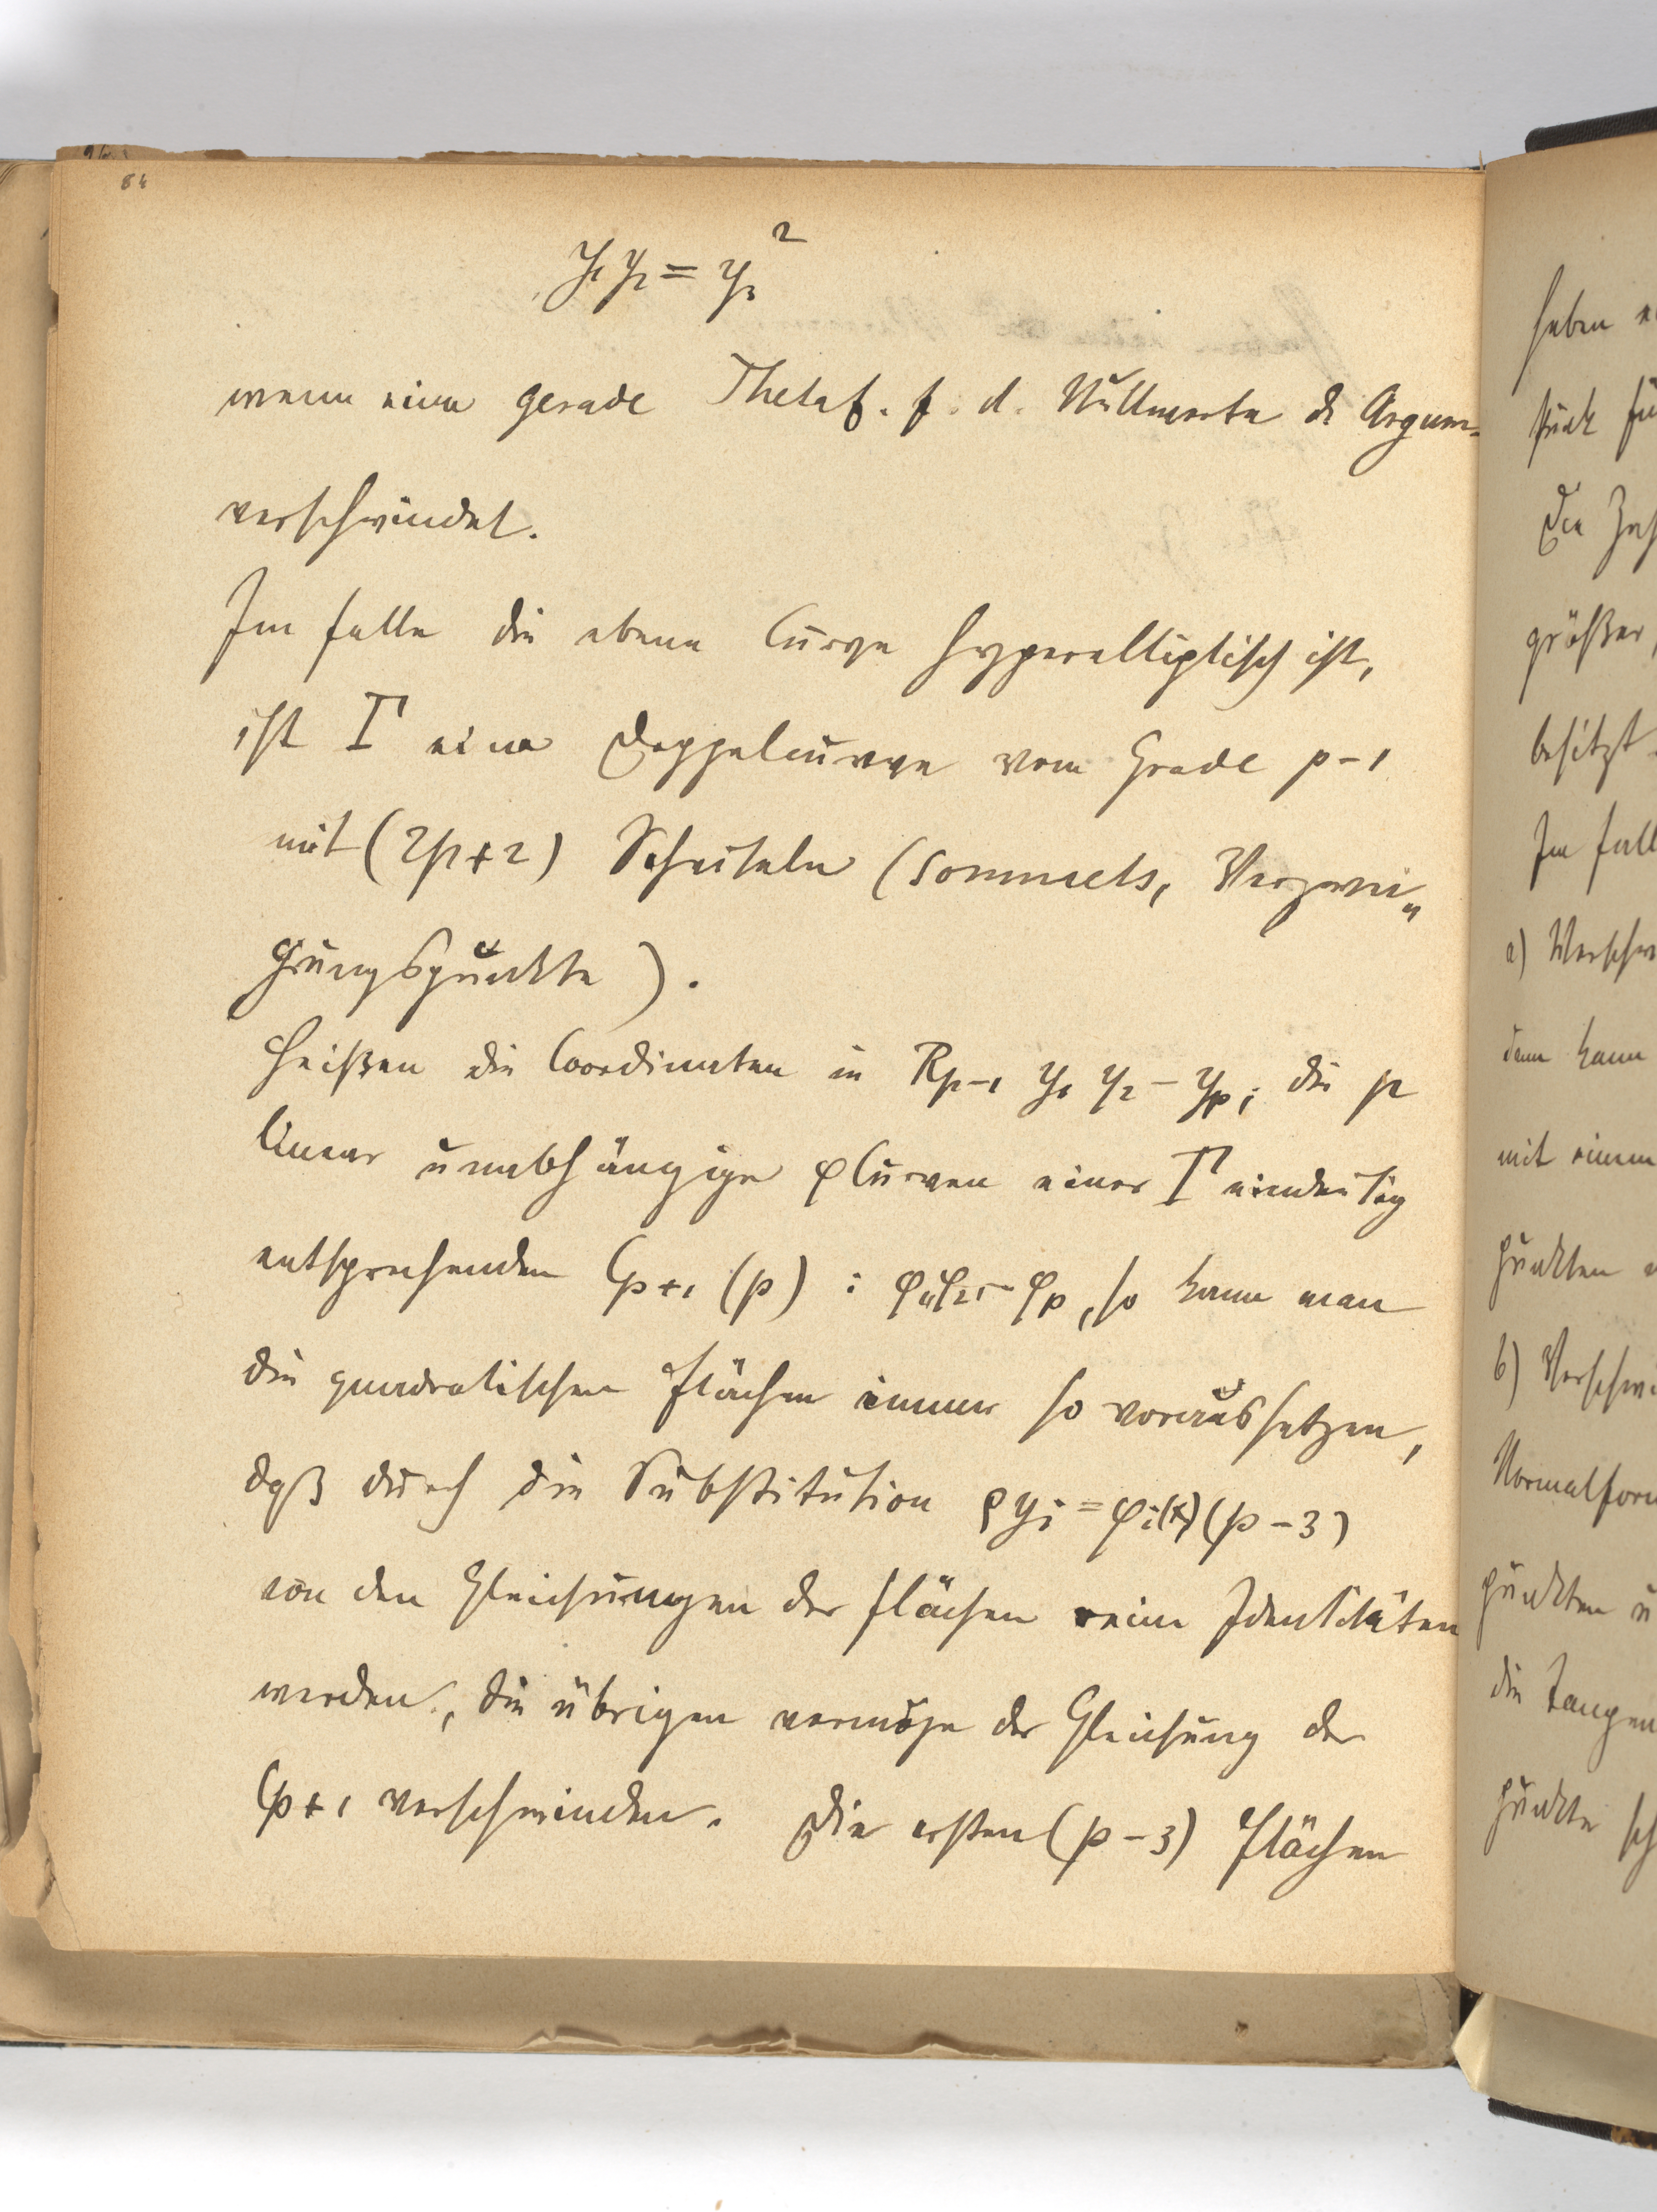 84
y₁y₂ = y₃²
wenn eine gerade Thetaf. f. d. Nullwerte d. Argum-
verschwindet.
Im falle die ebene Curve hyperelliptisch ist,
ist Γ eine Doppelcurve vom Grade p-1
mit (2p+2) Scheiteln (sommets, Verzwei„
gungspunkte).
Heißen die Coordinaten in Rp-1 y₁ y₂ – yp; die p
linear unabhängige φCurven einer Γ eindeutig
entsprechenden Cp+1 (p) : φ₁, φ₂, – φp, so kann man
die quadratischen Flächen immer so voraussetzen,
daß durch die Substitution ρyi = φi(x) (p-3)
von den Gleichungen der flächen reine Identitäten
werden, die übrigen vermöge der Gleichung der
Cp+1 verschwinden. Die ersten (p-3) Flächen
haben
Die
größer,
besitzt.
Im fall
a) Verschw
dann kann
mit einem
punkten
b) Verschw
Normalform
punkten u
die Tangen
punkte sch